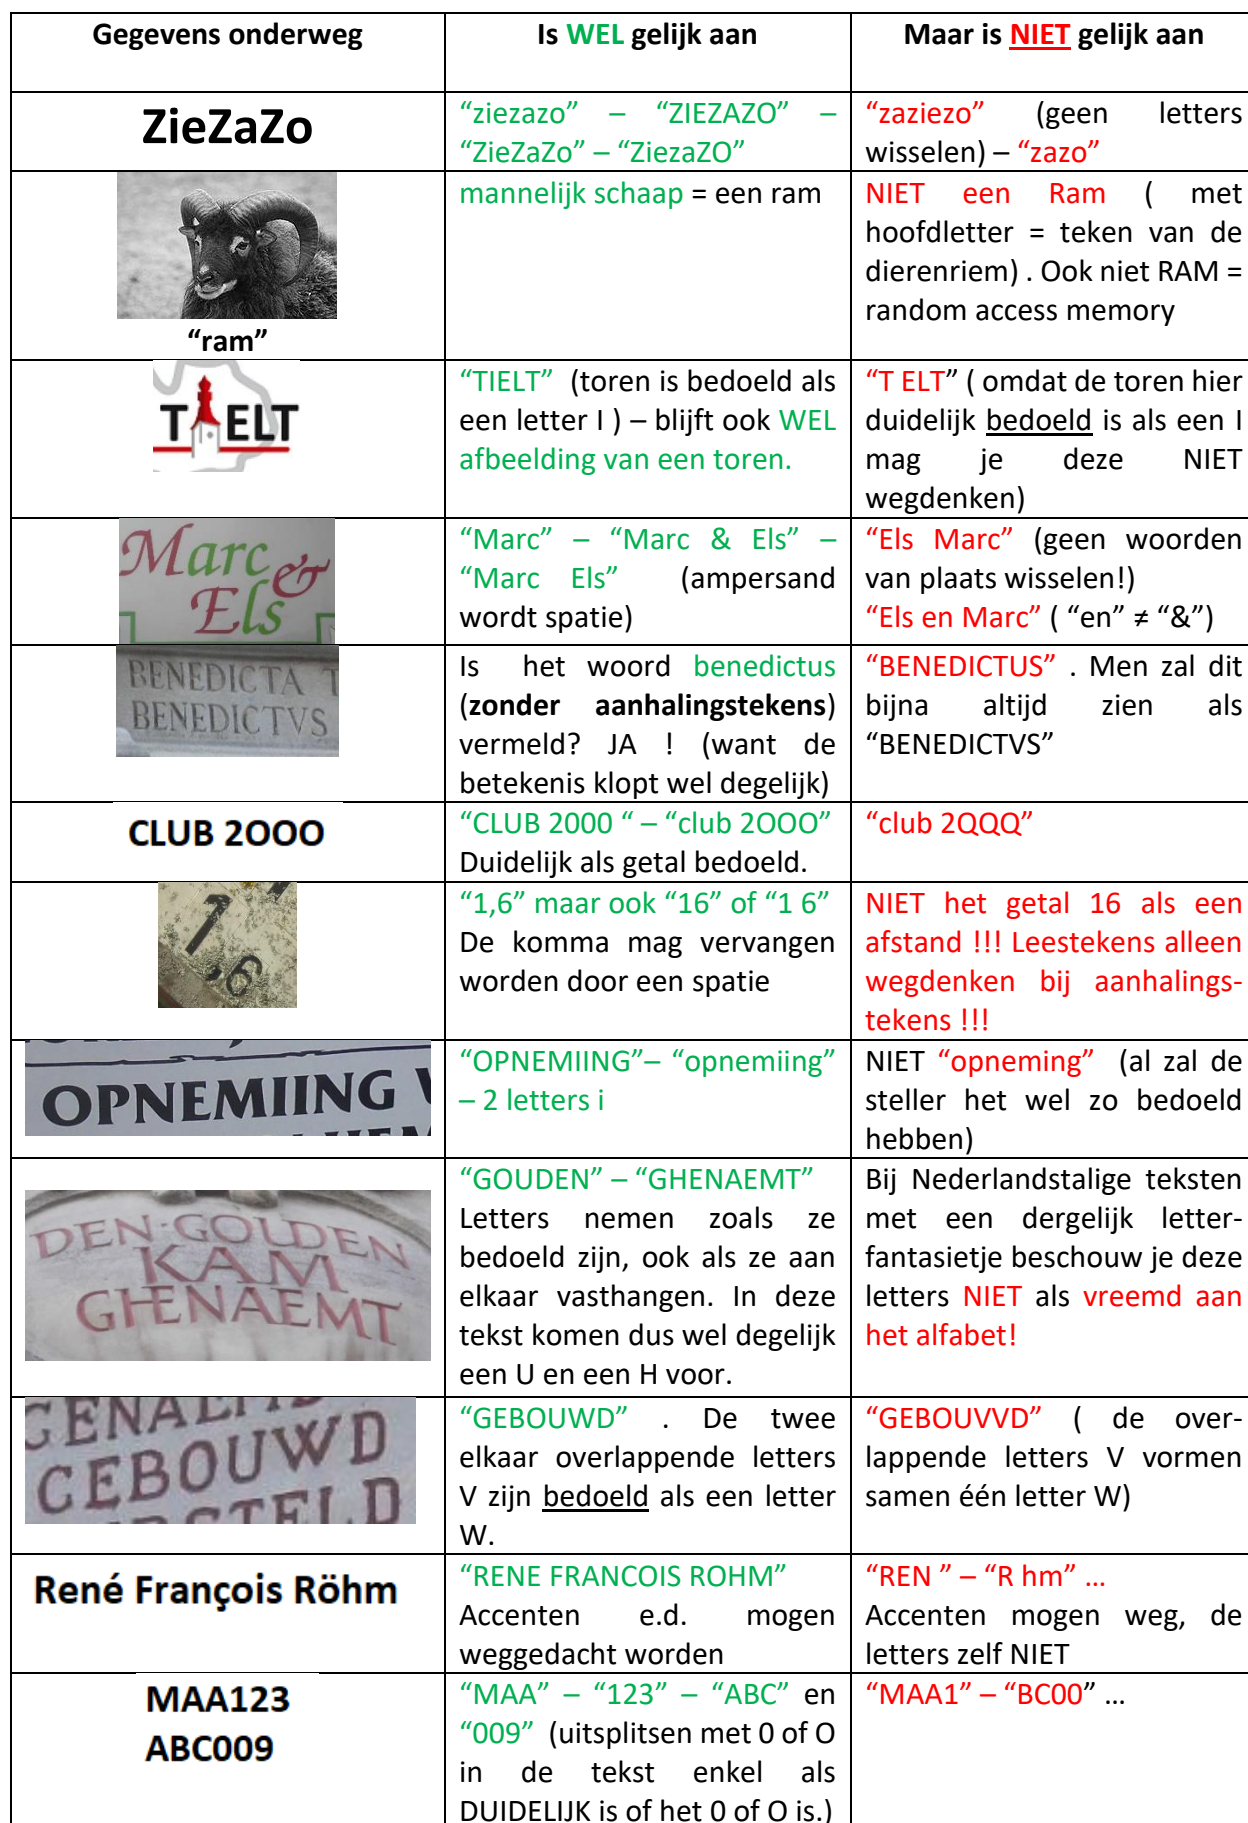 Gegevens onderweg
Is WEL gelijk aan
Maar is NIET gelijk aan
ZieZaZo
“ziezazo” – “ZIEZAZO” –
“ZieZaZo” – “ZiezaZO”
“zaziezo” (geen letters
wisselen) – “zazo”
“ram”
mannelijk schaap = een ram
NIET een Ram ( met
hoofdletter = teken van de
dierenriem) . Ook niet RAM =
random access memory
T ELT
“TIELT” (toren is bedoeld als
een letter I ) – blijft ook WEL
afbeelding van een toren.
“T ELT” ( omdat de toren hier
duidelijk bedoeld is als een I
mag je deze NIET
wegdenken)
Marc &
Els
“Marc” – “Marc & Els” –
“Marc Els” (ampersand
wordt spatie)
“Els Marc” (geen woorden
van plaats wisselen!)
“Els en Marc” ( “en” ≠ “&”)
BENEDICTA T
BENEDICTVS
Is het woord benedictus
(zonder aanhalingstekens)
vermeld? JA ! (want de
betekenis klopt wel degelijk)
“BENEDICTUS” . Men zal dit
bijna altijd zien als
“BENEDICTVS”
CLUB 2OOO
“CLUB 2000 “ – “club 2OOO”
Duidelijk als getal bedoeld.
“club 2QQQ”
1,6
“1,6” maar ook “16” of “1 6”
De komma mag vervangen
worden door een spatie
NIET het getal 16 als een
afstand !!! Leestekens alleen
wegdenken bij aanhalings-
tekens !!!
OPNEMIING V
“OPNEMIING”– “opnemiing”
– 2 letters i
NIET “opneming” (al zal de
steller het wel zo bedoeld
hebben)
DEN·GOUDEN
KAM
GHENAEMT
“GOUDEN” – “GHENAEMT”
Letters nemen zoals ze
bedoeld zijn, ook als ze aan
elkaar vasthangen. In deze
tekst komen dus wel degelijk
een U en een H voor.
Bij Nederlandstalige teksten
met een dergelijk letter-
fantasietje beschouw je deze
letters NIET als vreemd aan
het alfabet!
GEBOUWD
“GEBOUWD” . De twee
elkaar overlappende letters
V zijn bedoeld als een letter
W.
“GEBOUVVD” ( de over-
lappende letters V vormen
samen één letter W)
René François Röhm
“RENE FRANCOIS ROHM”
Accenten e.d. mogen
weggedacht worden
“REN ” – “R hm” ...
Accenten mogen weg, de
letters zelf NIET
MAA123
ABC009
“MAA” – “123” – “ABC” en
“009” (uitsplitsen met 0 of O
in de tekst enkel als
DUIDELIJK is of het 0 of O is.)
“MAA1” – “BC00” ...